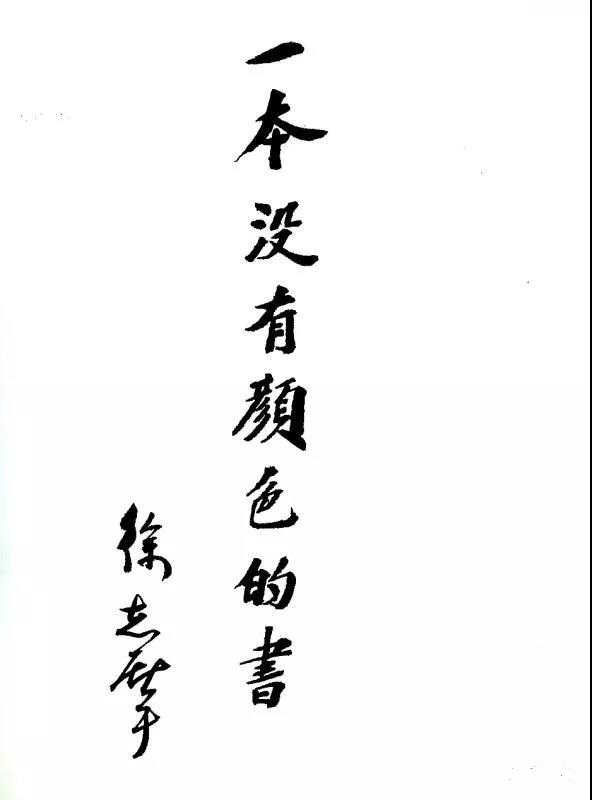 一本没有顔色的書
徐志摩